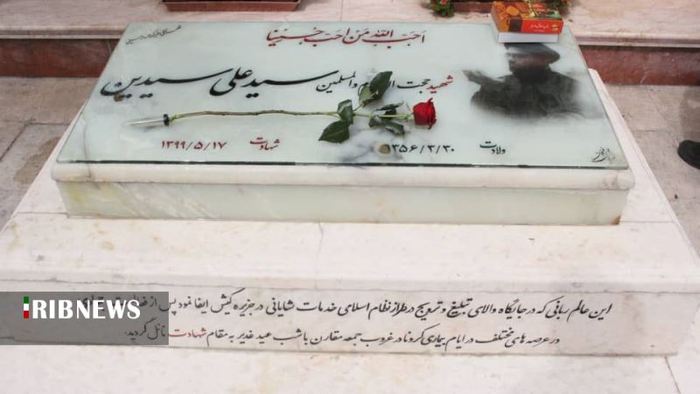 احب الله من احب حسینا
شهید حجت الاسلام والمسلمین سید علی سیدین
ولادت ۱۳۵۶/۳/۳۰ شهادت ۱۳۹۹/۵/۱۷
این عالم ربانی که در جایگاه والای تبلیغ و ترویج در طراز نظام اسلامی خدمات شایانی در جزیره کیش ایفا نمود پس از
در عرصه های مختلف در ایام بیماری کرونا در غروب جمعه مقارن با شب عید غدیر به مقام شهادت نائل گردید.
IRIBNEWS